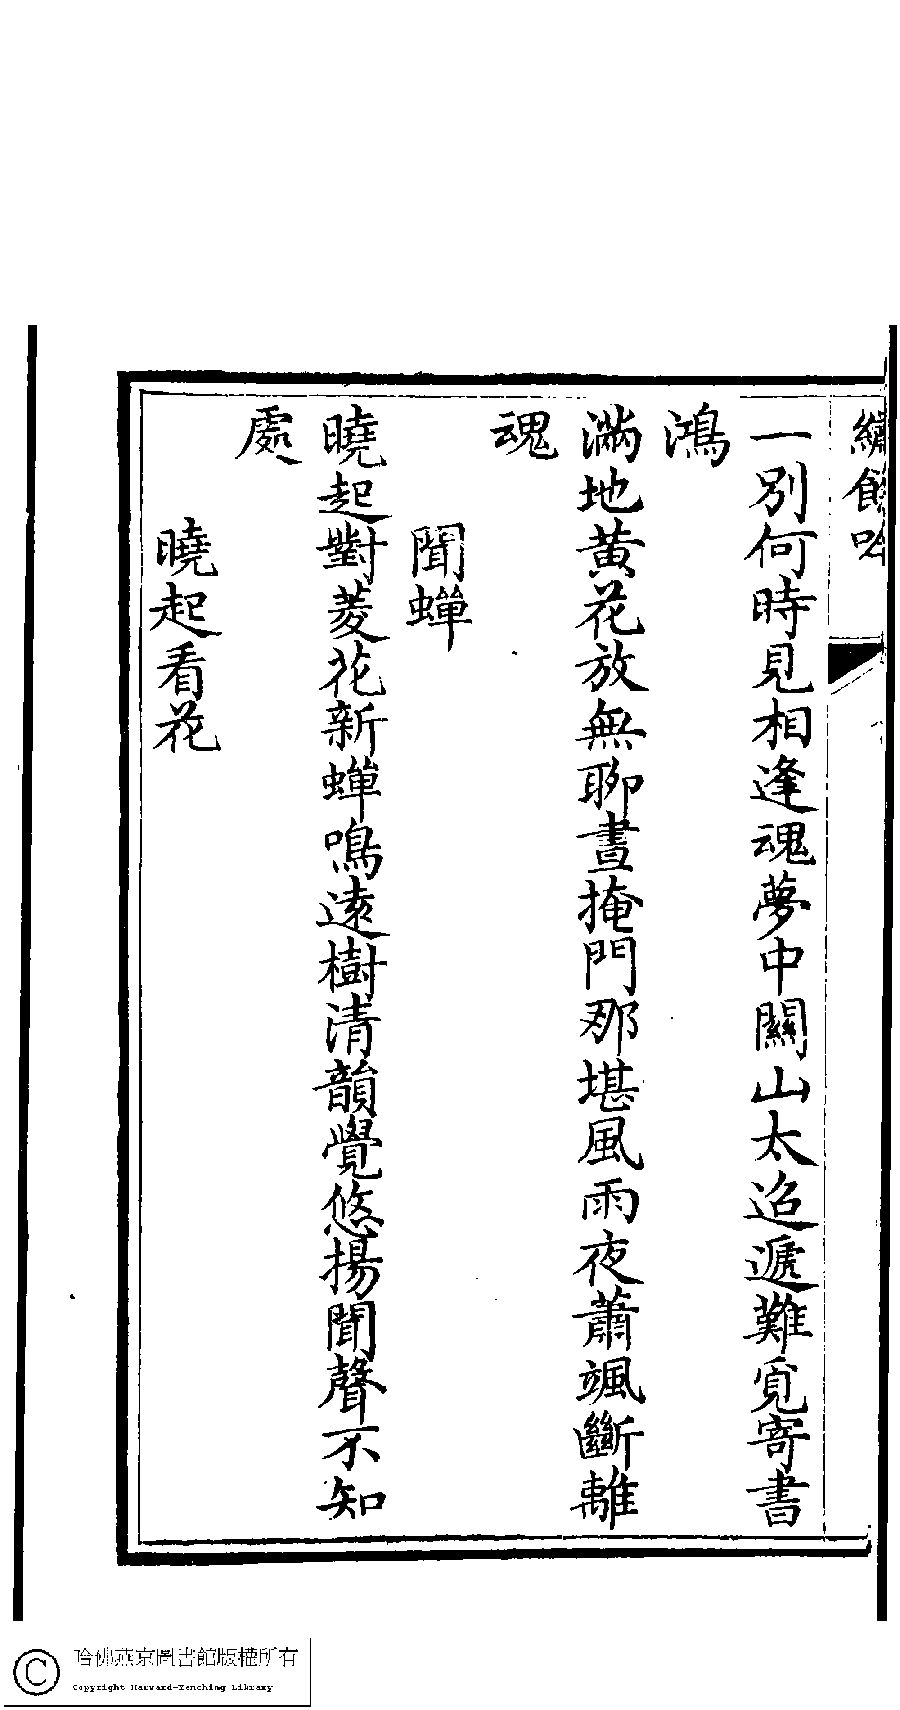 繡餘吟
一別何時見相逢魂夢中關山太迢遞難覓寄書
鴻
滿地黃花放無聊晝掩門那堪風雨夜蕭颯斷離
魂
聞蟬
曉起對菱花新蟬鳴遠樹清韻覺悠揚聞聲不知
處
曉起看花
哈佛燕京圖書館版權所有
Copyright Harvard-Yenching Library